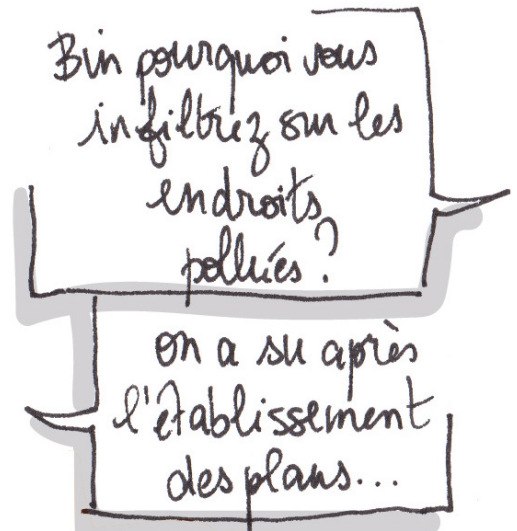 Bin pourquoi vous
infiltrez sur les
endroits
polluées ?
on a su après
l'établissement
des plans...